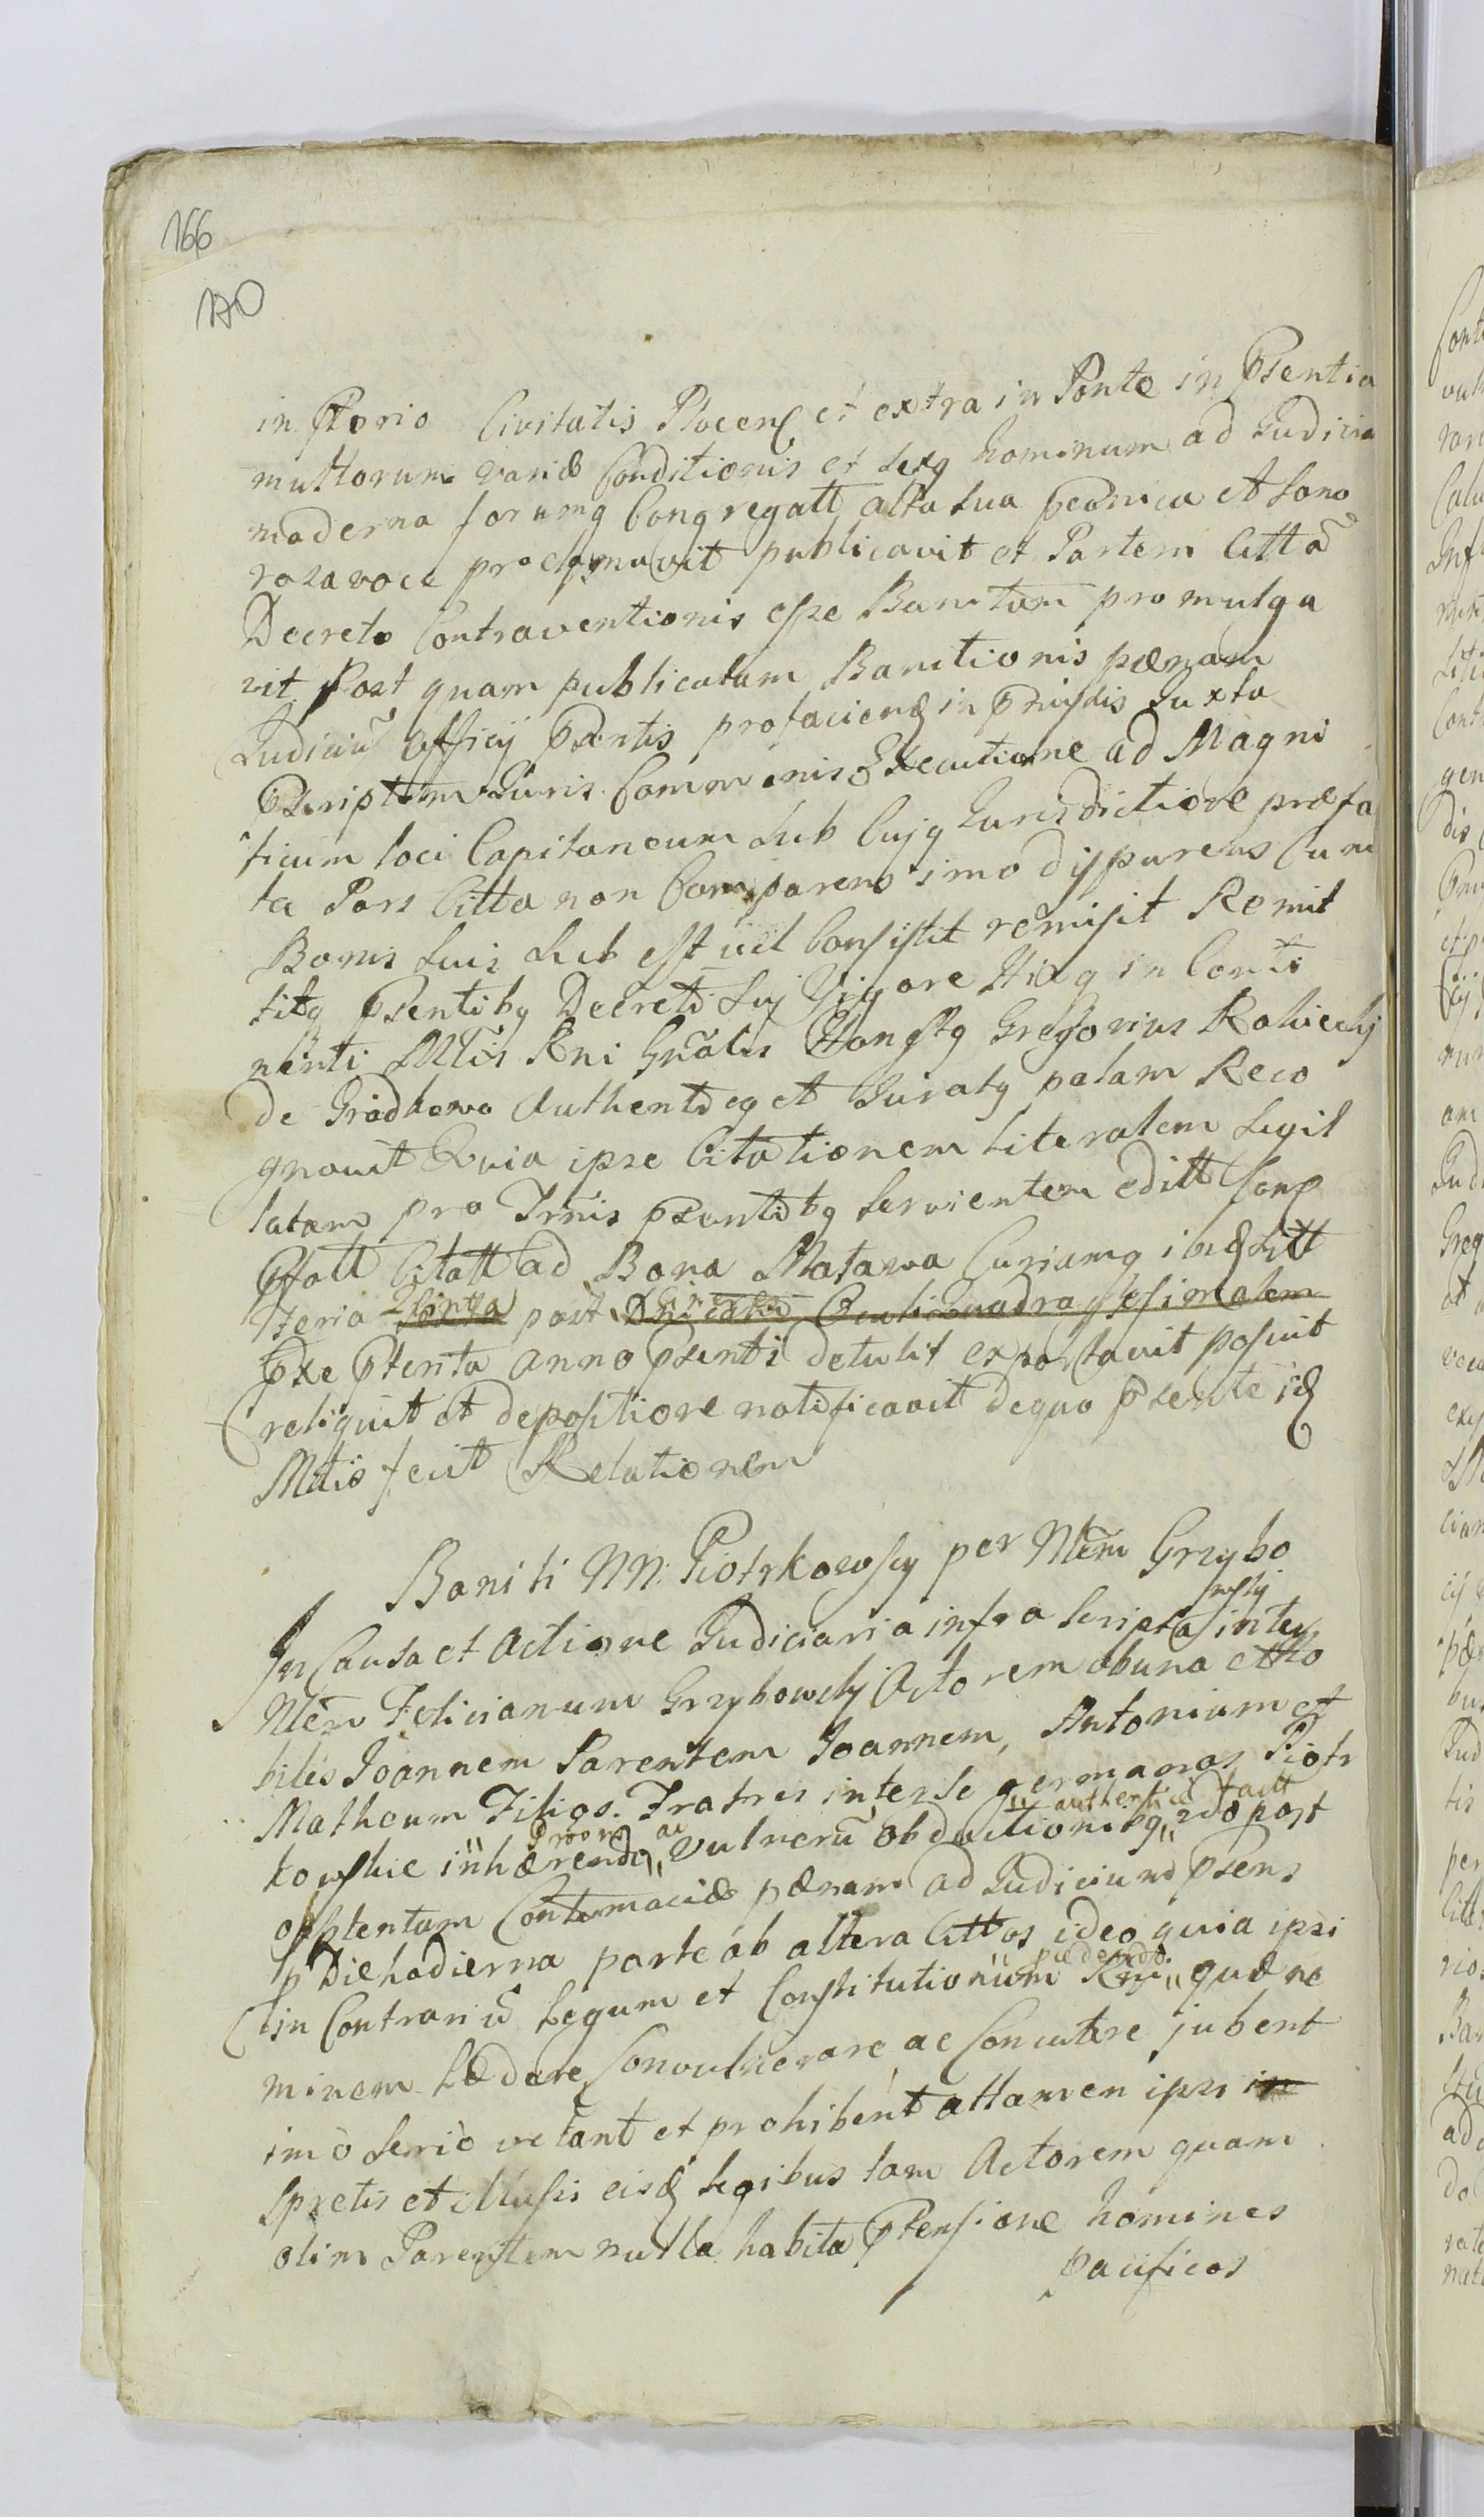 166
170
in Ptorio Civitatis Plocen et extra in Ponte in Psentia
multorum variæ Conditionis et Sexq hominum ad Judicia
moderna forumq Congregatt alta sua Peonica et sono
roza voce proclamavit publicavit et Partem Citta
Decreto Contraventionis esse Banitam promulga
vit Post quam publicatam Banitionis pænam
Judiciū Officij Psentis pro faciend in Pmissis Juxta
Pscriptum Juris Communis Executione ad Magni
ficum loci Capitaneum Sub Cujq Jurisdictione præfa
ta Pars Citta non Comparens imo disparens Cum
Bonis suis Sub est vel Consistit remisit Remit
titq Psentibq Decreti Suj Vigore Hicq in Conti
nenti Mtis Rni Gnalis Honstq Gregorius Rokicky
de Gradkowo Authenticq et Juratq palam Reco
gnovit Quia ipse Citationem literalem Sigil
latam pro Trnis psentibq servientem editt Conp
Pfatt Citatt ad Bona Matawa Curiamq ibid Sitt
Feria Quinta post Cinerū
Pxe Ptenta anno Psenti detulit exportavit posuit
reliquit et depositione notificavit dequo Psente id
Mtis fecit Relationem
Baniti NN: Piotrkowscy per Nlem Grzybo
wskj
In Causa et Actione Judiciaria infra scripta inter
Nlem Felicianum Grzybowskj Actorem abuna et No
biles Joannem Parentem Joannem, Antonium et
Matheum Filios. Fratres inter se germanos Piotr
authentice factt
kowskie inhærendo vulnerū obductionibq 2do post
obtentam Contumaciæ pænam ad Judicium Psens
p Die hodierna parte ab altera Cittos ideo quia ipsi
in Contrariū Legum et Constitutionum Rni quæ ne
minem Lædere, Convulnerare ac Concutere jubent
imò seriò vetant et prohibent attamen ipsi
Spretis et illusis eisd legibus tam Actorem quam
olim Parentem nulla habita Ptensione homines
pacificos